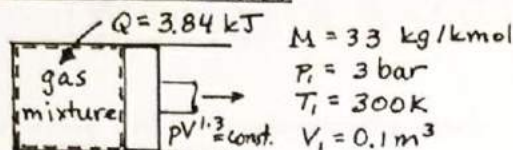 Q = 3.84 kJ
gas
mixture
pV^1.3 = const.
M = 33 kg/kmol
P₁ = 3 bar
T₁ = 300K
V₁ = 0.1 m³